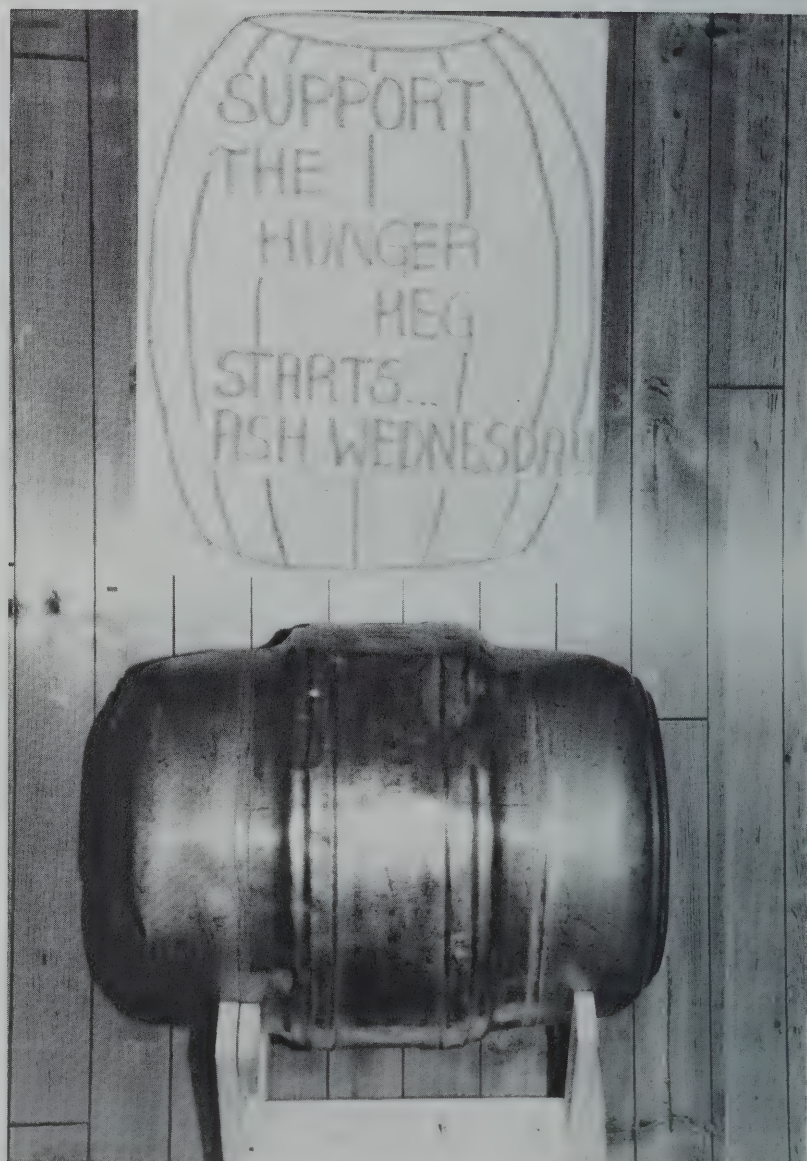 SUPPORT
THE
HUNGER
HEG
STARTS...
ASH WEDNESDAY